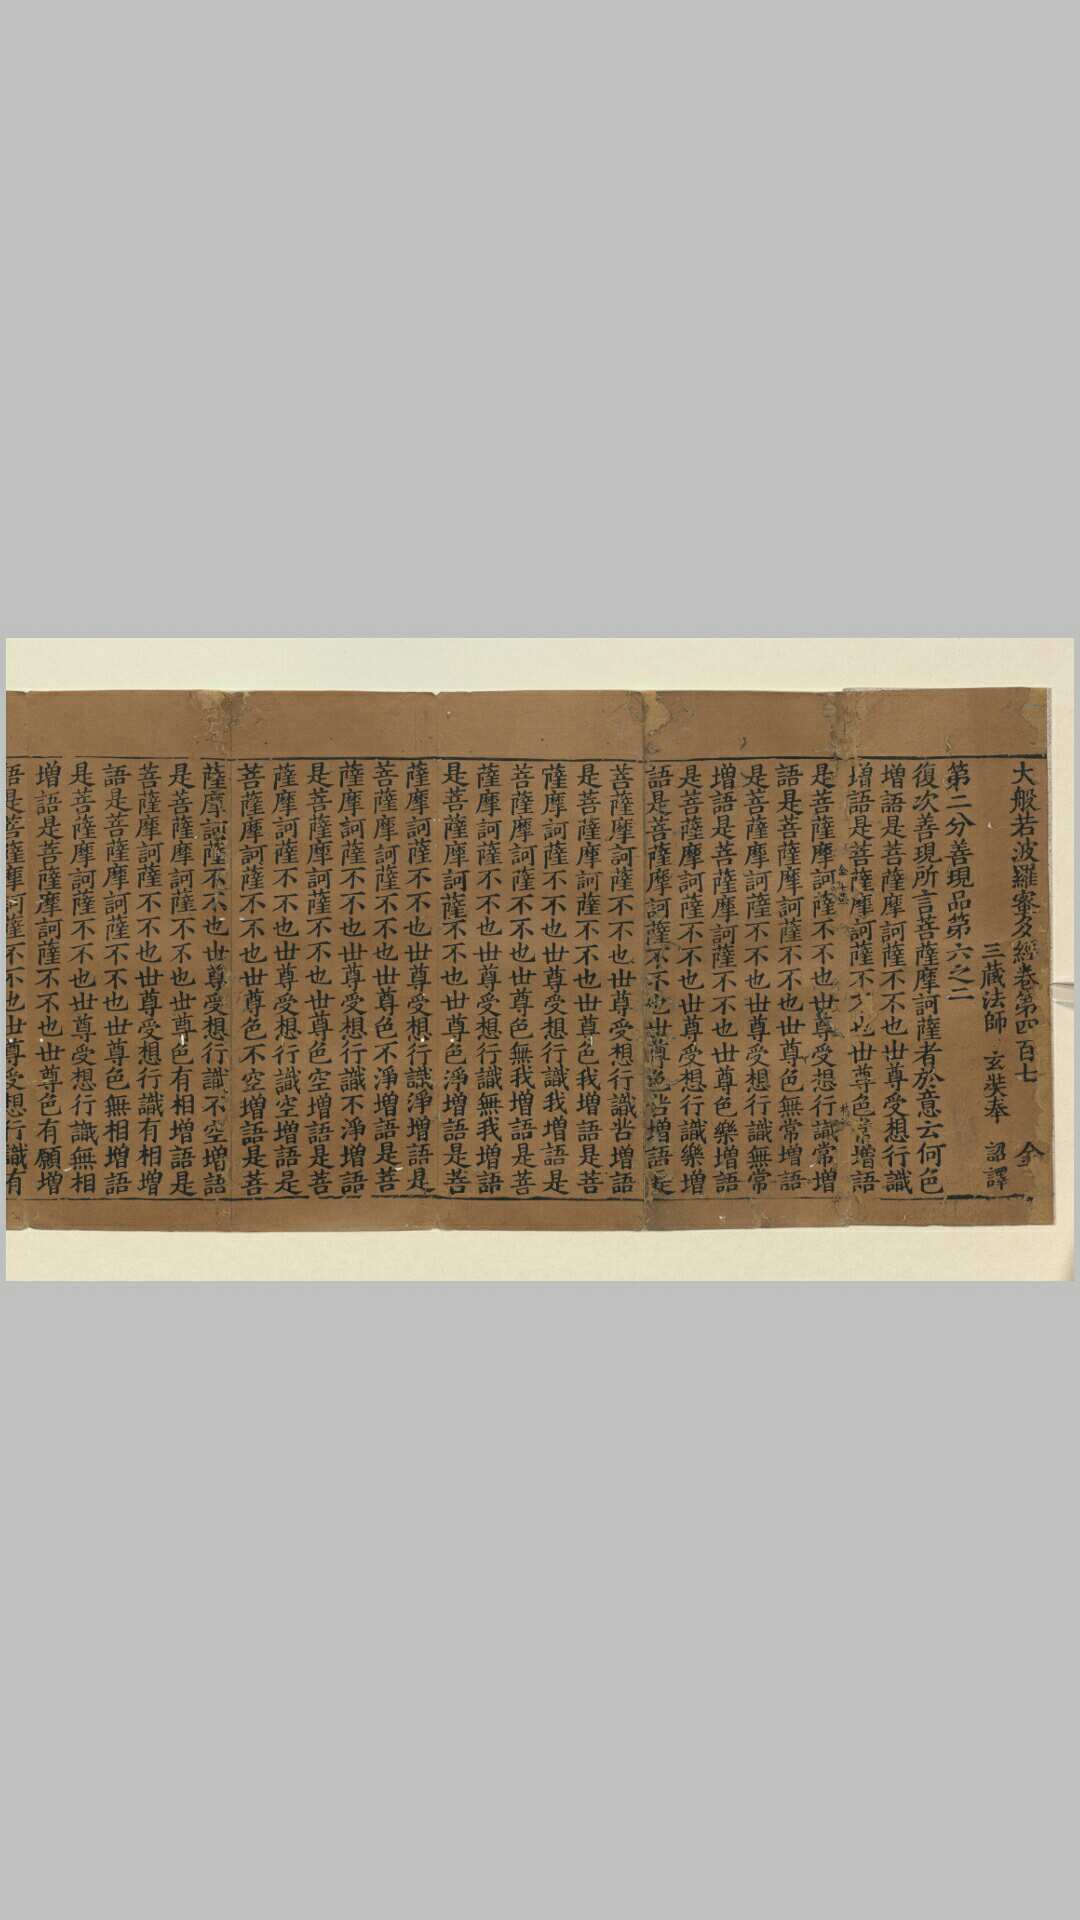 大般若波羅蜜多經卷第四百七 金
三蔵法師 玄奘奉 詔譯
第二分善現品第六之二
復次善現所言菩薩摩訶薩者於意云何色
增語是菩薩摩訶薩不不也世尊受想行識
增語是菩薩摩訶薩不不也世尊色常增語
是菩薩摩訶薩不不也世尊受想行識常增
語是菩薩摩訶薩不不也世尊色無常增語
是菩薩摩訶薩不不也世尊受想行識無常
增語是菩薩摩訶薩不不也世尊色樂增語
是菩薩摩訶薩不不也世尊受想行識樂增
語是菩薩摩訶薩不不也世尊色苦增語是
菩薩摩訶薩不不也世尊受想行識苦增語
是菩薩摩訶薩不不也世尊色我增語是菩
薩摩訶薩不不也世尊受想行識我增語是
菩薩摩訶薩不不也世尊色無我增語是菩
薩摩訶薩不不也世尊受想行識無我增語
是菩薩摩訶薩不不也世尊色淨增語是菩
薩摩訶薩不不也世尊受想行識淨增語是
菩薩摩訶薩不不也世尊色不淨增語是菩
薩摩訶薩不不也世尊受想行識不淨增語
是菩薩摩訶薩不不也世尊色空增語是菩
薩摩訶薩不不也世尊受想行識空增語是
菩薩摩訶薩不不也世尊色不空增語是菩
薩摩訶薩不不也世尊受想行識不空增語
是菩薩摩訶薩不不也世尊色有相增語是
菩薩摩訶薩不不也世尊受想行識有相增
語是菩薩摩訶薩不不也世尊色無相增語
是菩薩摩訶薩不不也世尊受想行識無相
增語是菩薩摩訶薩不不也世尊色有願增
語是菩薩摩訶薩不不也世尊受想行識有